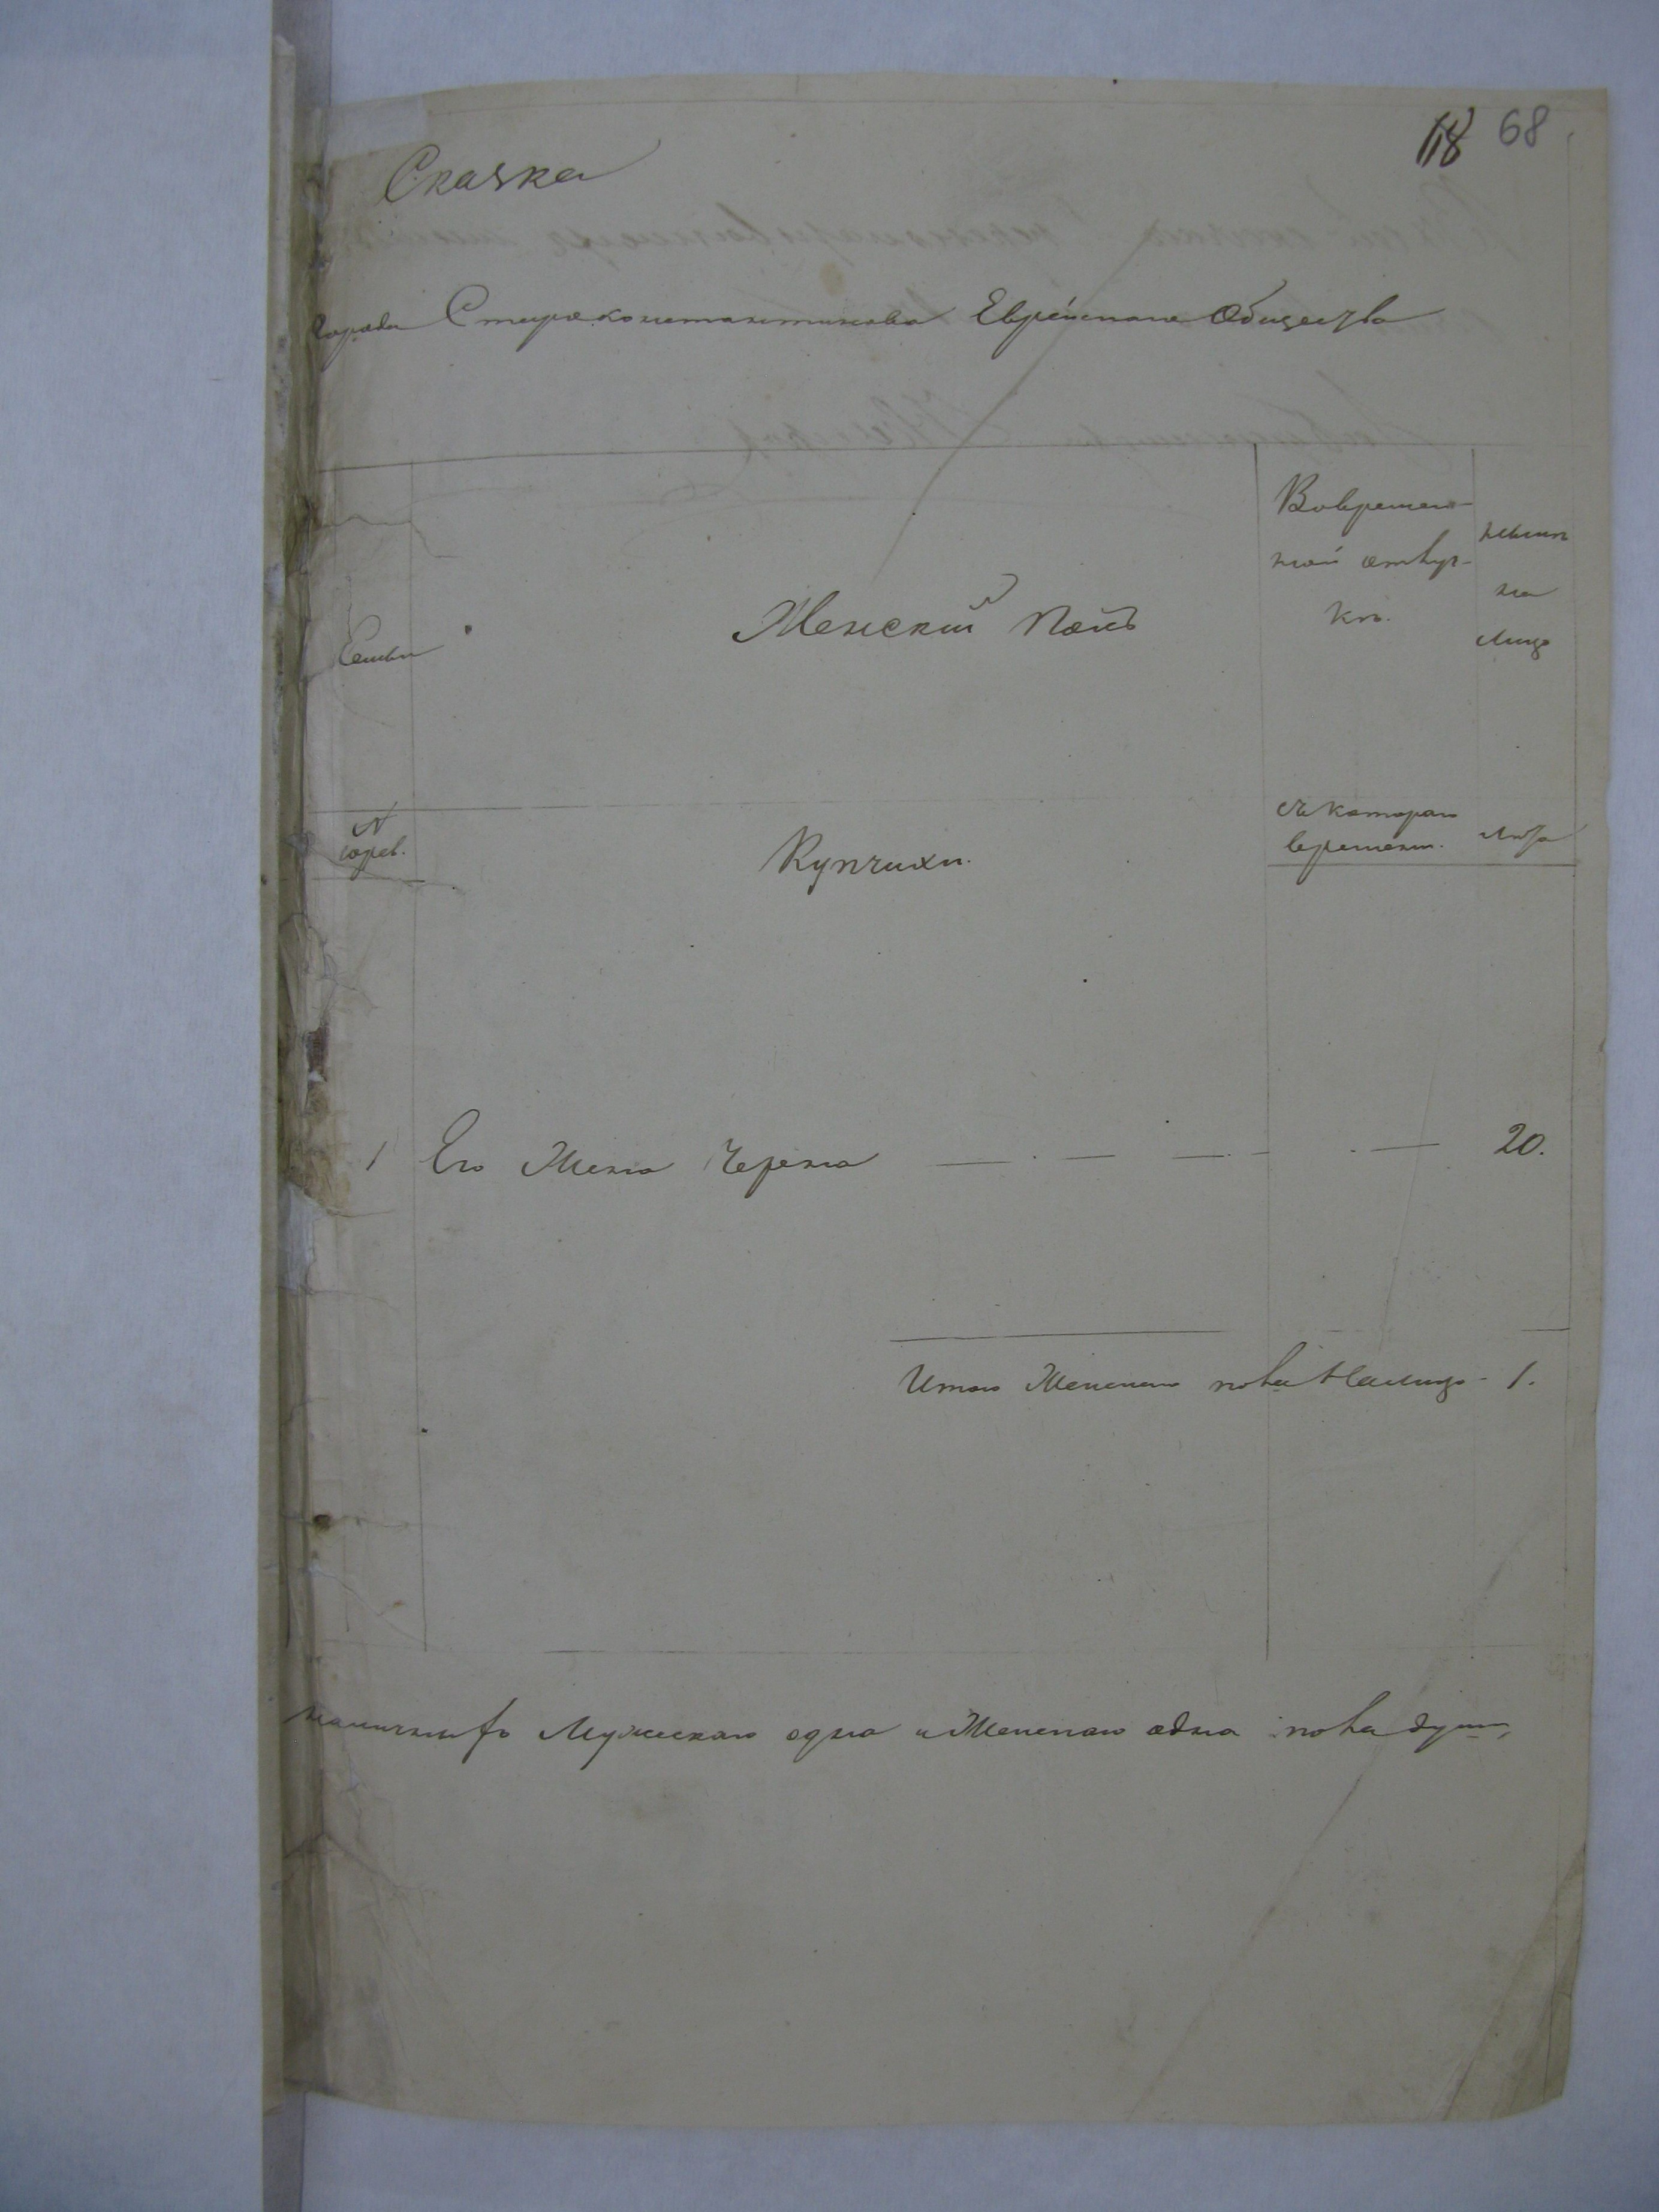 118 68
Сказка
города Староконстантинова Еврейскаго Общества
Семьи
Женский полъ
Вовремен-
ной отлуч-
къ.
нынъ
на
лицо
N
Купчихи.
съ котораго
времени.
лъта
1 Его Жена Черна 20.
Итого Женскаго пола Налицо - 1.
наличныхъ Мужескаго одна и Женскаго одна пола душъ,